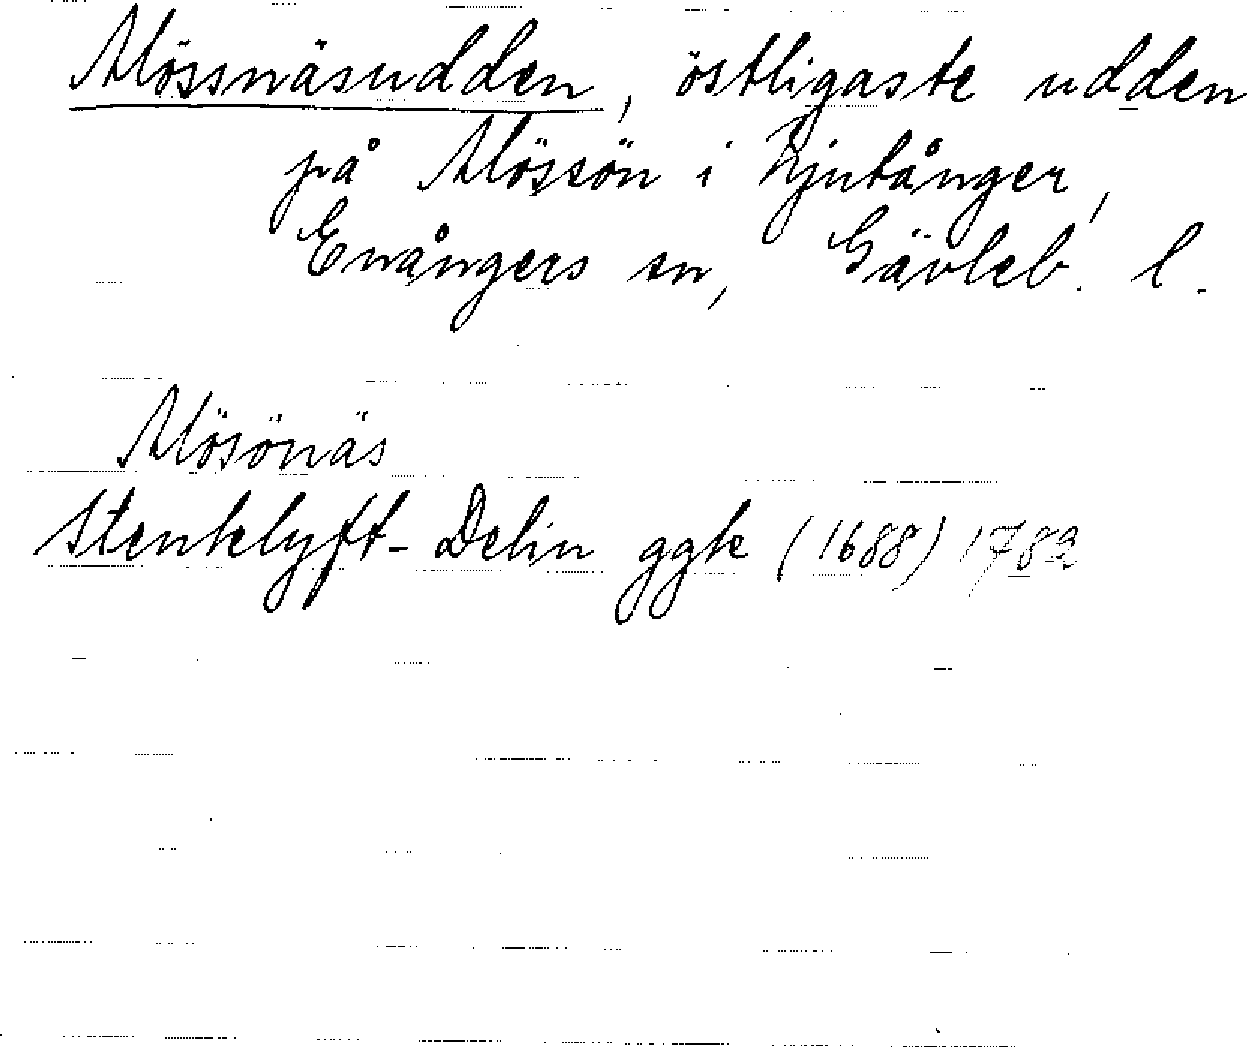 Mössnäsudden, östligaste udden
på Mössön i Njutånger,
Enångers sn, Gävleb. l.
Mösönäs
Stenklyft-Delin ggk (1688) 1782